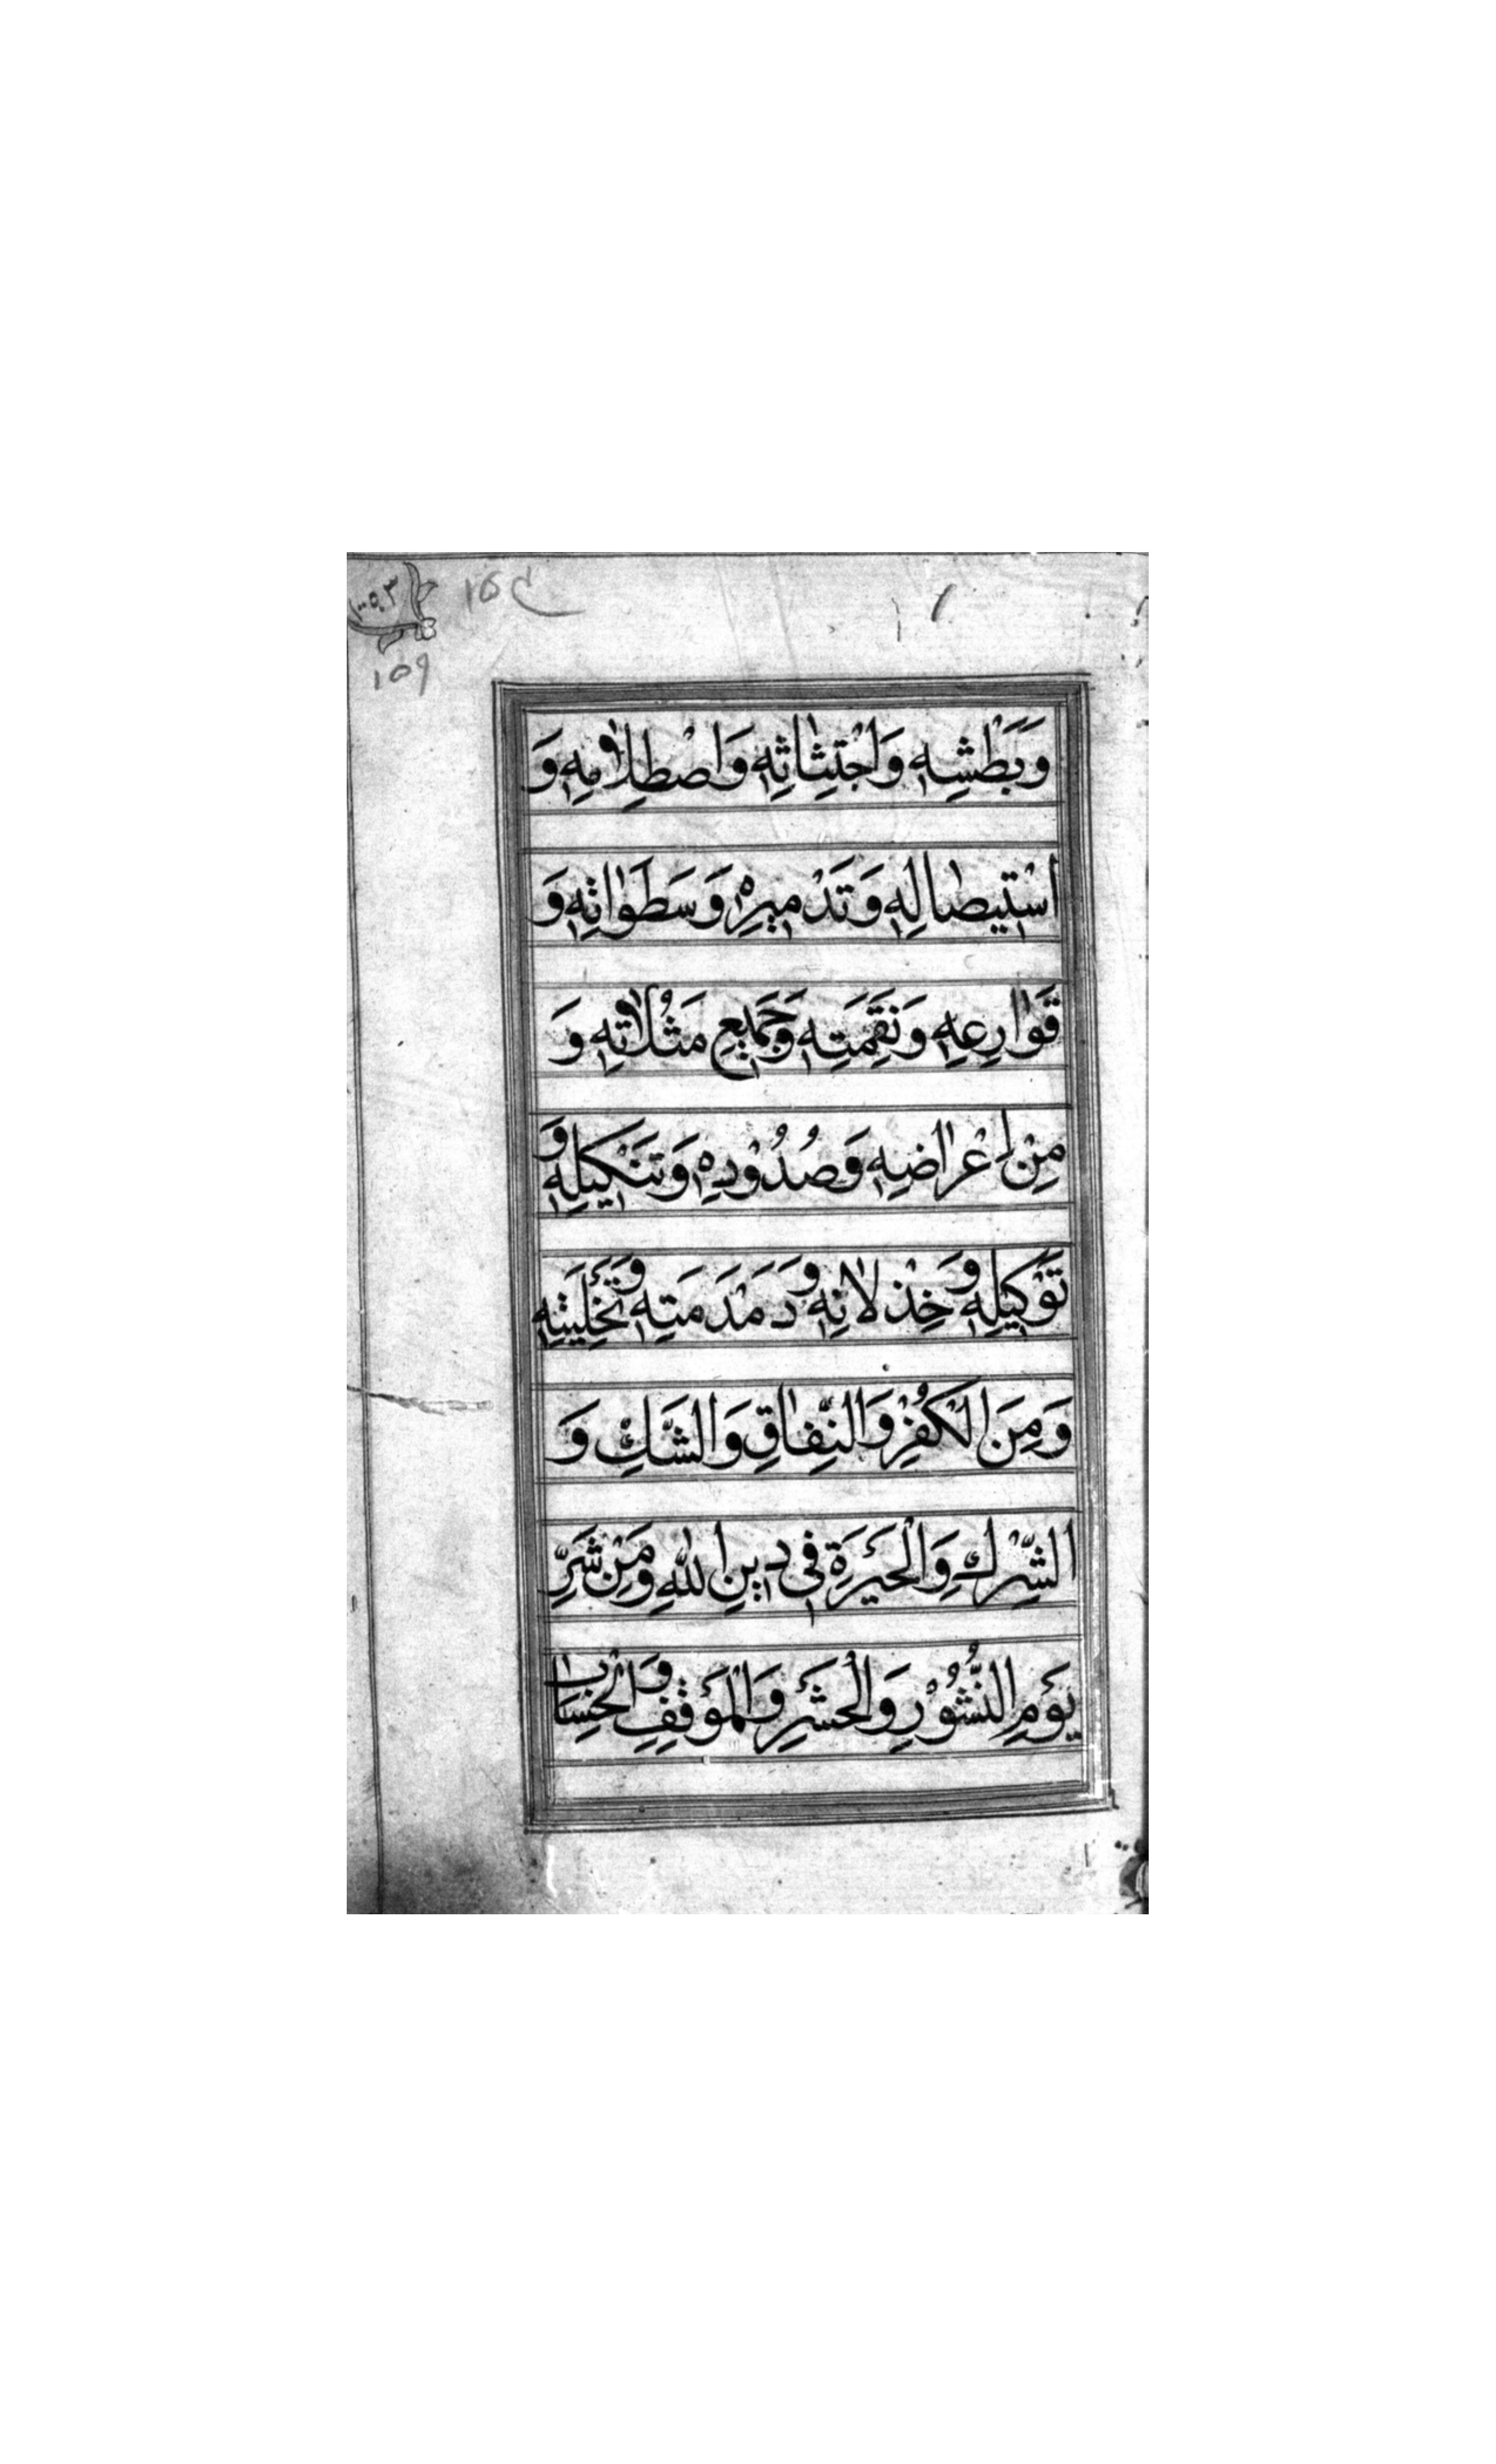 ١٥٩
وَبَطْشِهِ وَاجْتِثَاثِهِ وَاصْطِلَامِهِ وَ
اسْتِيصَالِهِ وَتَدْمِيرِهِ وَسَطَوَاتِهِ وَ
قَوَارِعِهِ وَنَقِمَتِهِ وَجَمِيعِ مَثُلَاتِهِ وَ
مِنْ اِعْرَاضِهِ وَصُدُوْدِهِ وَتَنْكِيلِهِ وَ
تَوْكِيلِهِ وَخِذْلَانِهِ وَدَمْدَمَتِهِ وَتَخْلِيَتِهِ
وَمِنَ الْكُفْرِ وَالنِّفَاقِ وَالشَّكِّ وَ
الشِّرْكِ وَالْحَيْرَةِ فِي دِينِ اللهِ وَمِنْ شَرِّ
يَوْمِ النُّشُوْرِ وَالْحَشْرِ وَالْمَوْقِفِ وَالْحِسَابِ